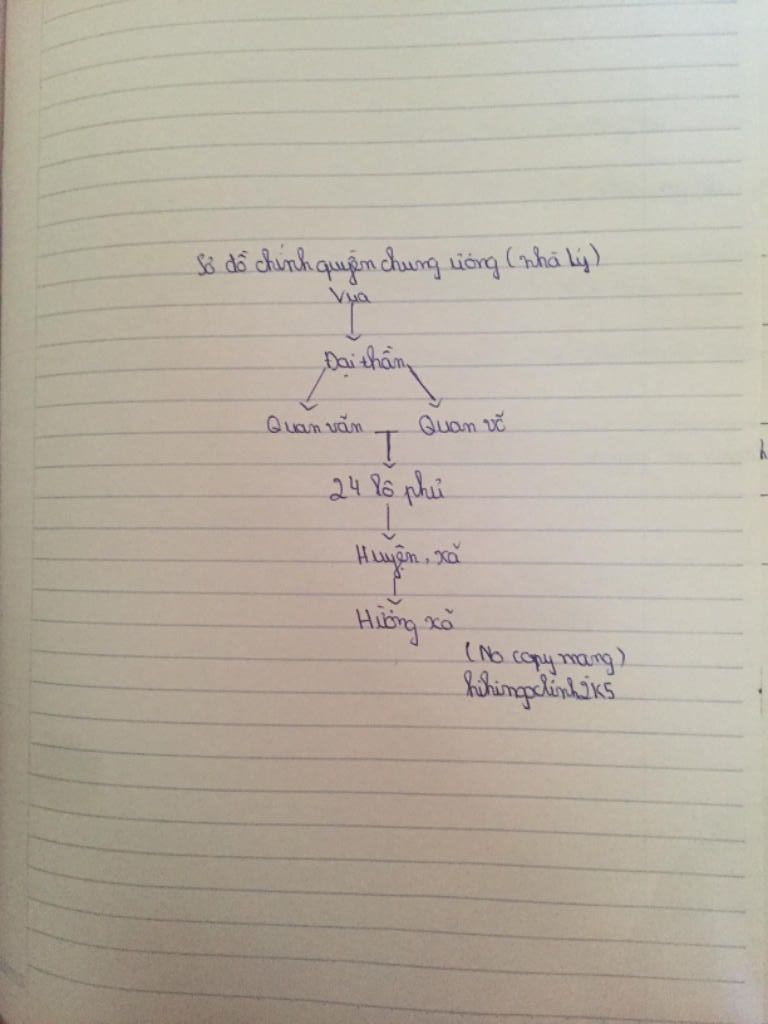 Sơ đồ chính quyền chung ương (nhà Lý)
Vua
Đại thần
Quan văn Quan võ
24 lộ phủ
Huyện, xã
Hương xã
(No copy mang)
hihingoclinh2k5